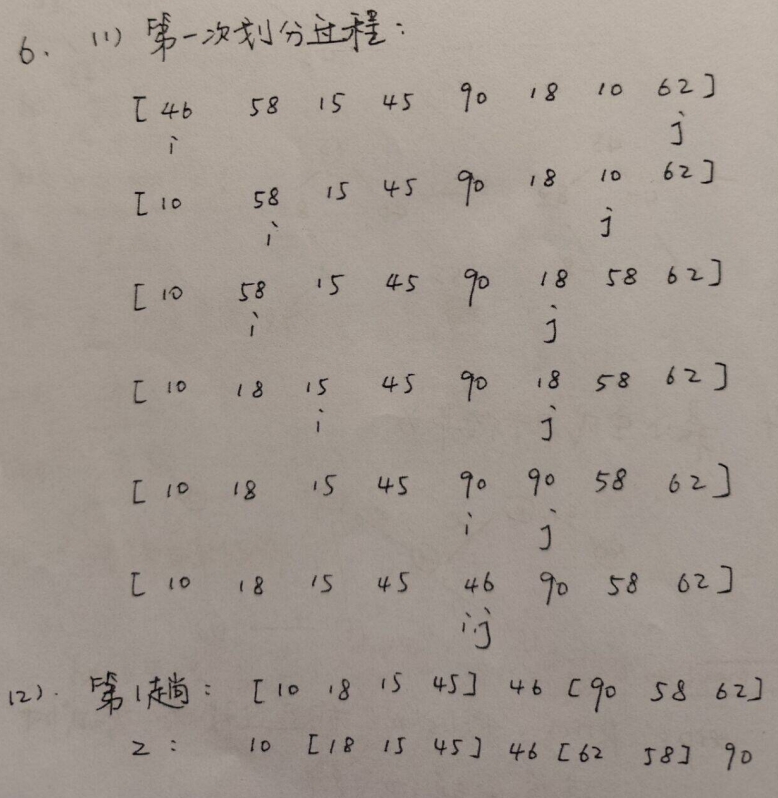 6. (1) 第一次划分过程:
[ 46 58 15 45 90 18 10 62 ]
i j
[ 10 58 15 45 90 18 10 62 ]
i j
[ 10 58 15 45 90 18 58 62 ]
i j
[ 10 18 15 45 90 18 58 62 ]
i j
[ 10 18 15 45 90 90 58 62 ]
i j
[ 10 18 15 45 46 90 58 62 ]
i.j
(2). 第1趟: [ 10 18 15 45 ] 46 [ 90 58 62 ]
2: 10 [ 18 15 45 ] 46 [ 62 58 ] 90